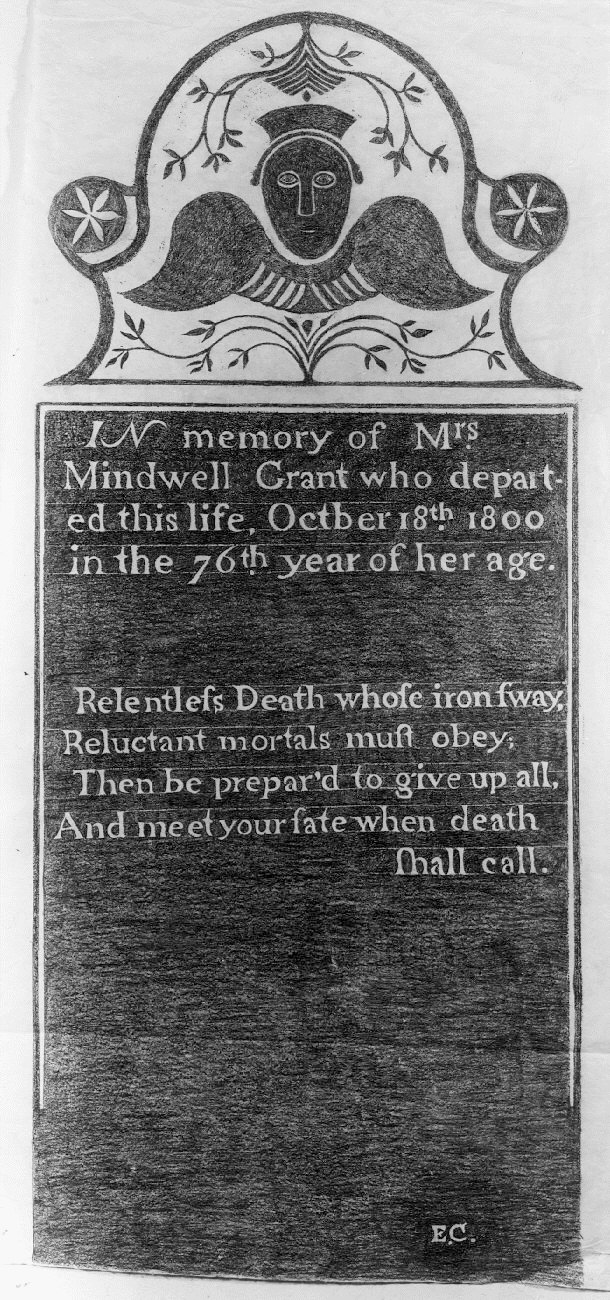 IN memory of Mrs.
Mindwell Grant who depart-
ed this life, Octber 18th. 1800
in the 76th. year of her age.
Relentleſs Death whoſe iron ſway,
Reluctant mortals muſt obey;
Then be prepar'd to give up all,
And meet your fate when death
ſhall call.
E.C.